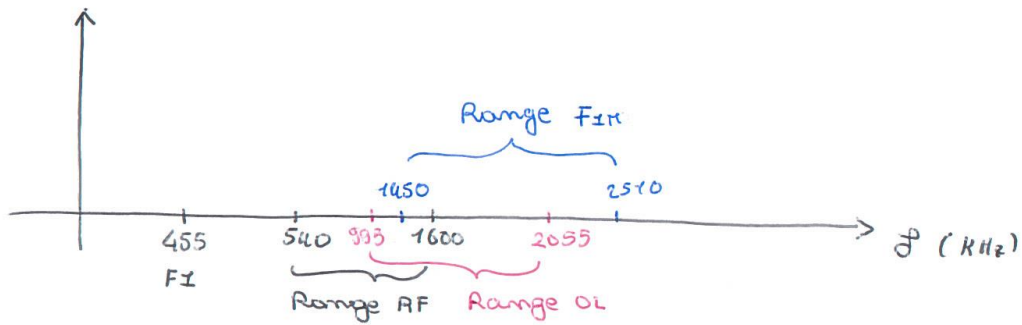 Range FIM
1450 2510
455 540 995 1600 2055 f (KHz)
FI
Range RF Range OL